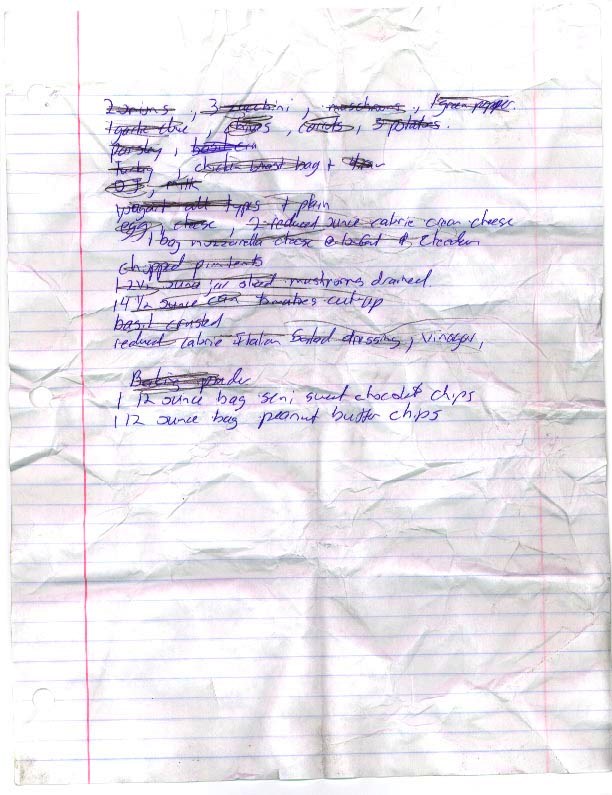 2 onions, 3 zucchini, muschrooms, 1 green pepper.
1 garlic clove, chives, carrots, 5 potatoes.
parsley,
turkey, chicken breast bag +
OJ, milk
yogurt all types + plain
egg, cheese, 2 reduced ounce calorie cream cheese
1 bag mozzarella cheese
chopped pimientos
ounce jar sliced mushrooms drained
14 1/2 ounce can tomatoes cut-up
basil crusted
reduced calorie Italian Salad dressing, vinegar,
Baking powder
1 12 ounce bag semi sweet chocolate chips
1 12 ounce bag peanut butter chips